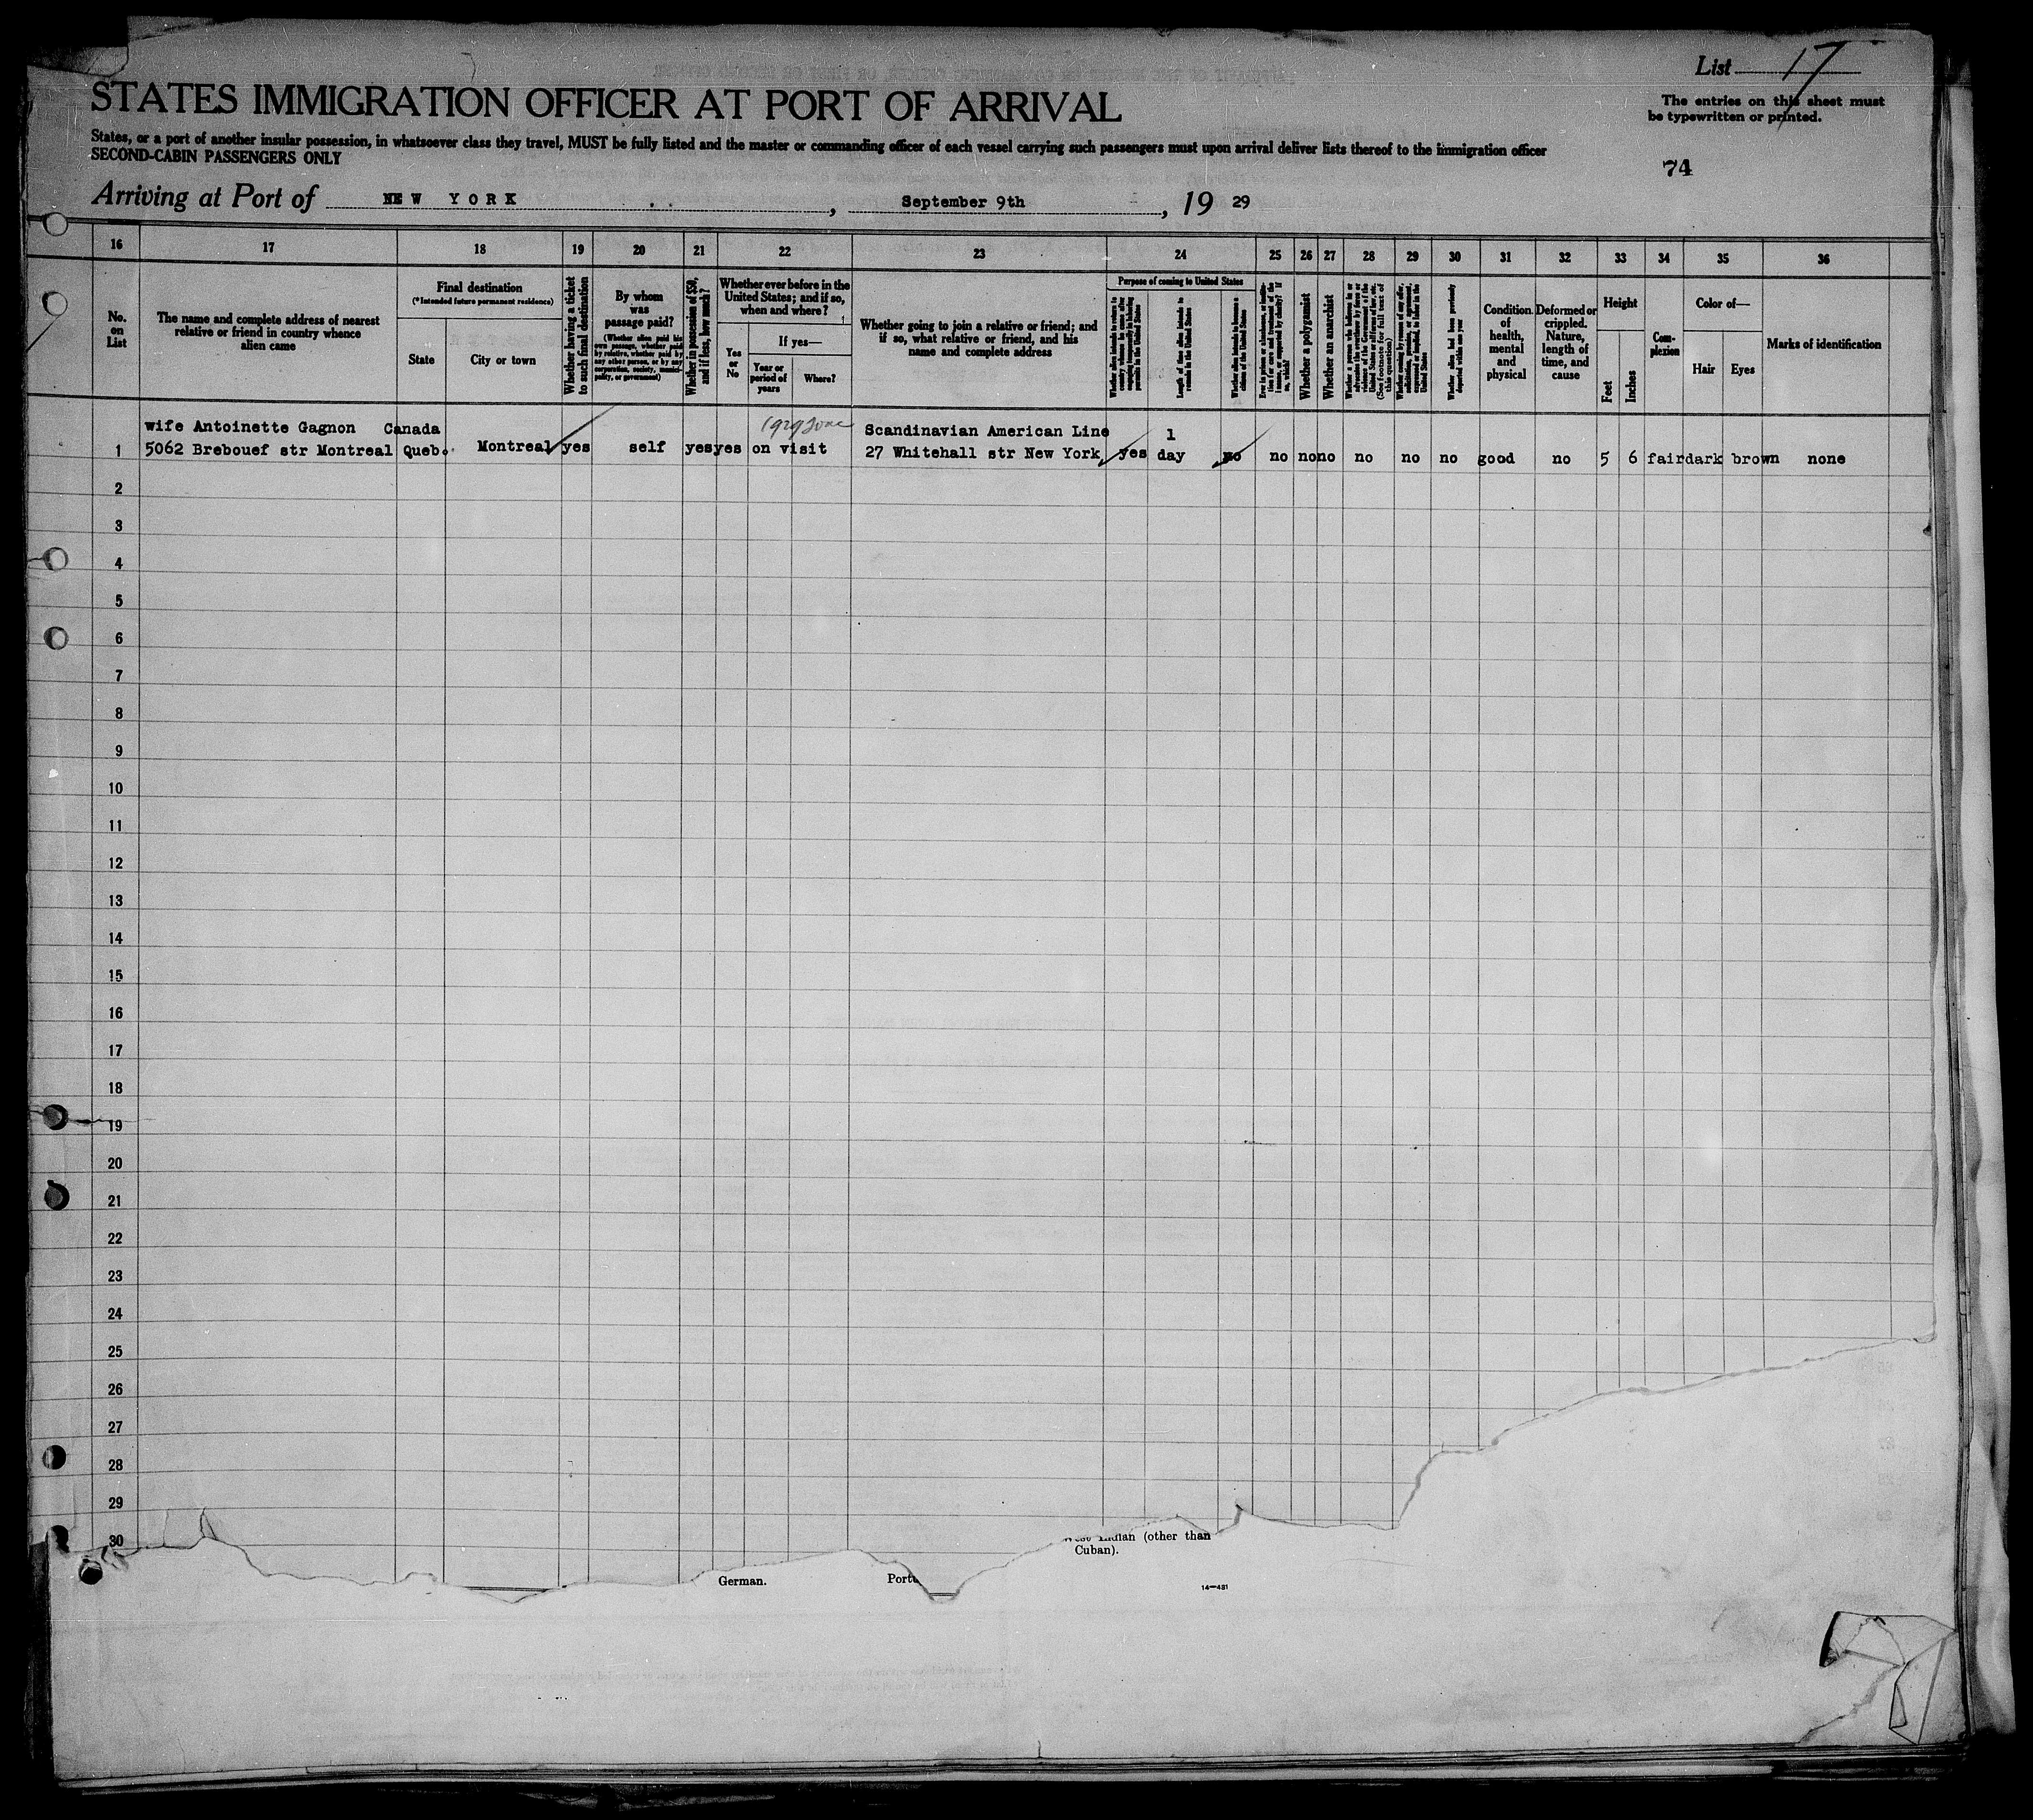 List 17
STATES IMMIGRATION OFFICER AT PORT OF ARRIVAL
The entries on this sheet must
be typewritten or printed.
States, or a port of another insular possession, in whatsoever class they travel, MUST be fully listed and the master or commanding officer of each vessel carrying such passengers must upon arrival deliver lists thereof to the immigration officer
SECOND-CABIN PASSENGERS ONLY
74
Arriving at Port of NEW YORK, September 9th, 19 29
16 17 18 19 20 21 22 23 24 25 26 27 28 29 30 31 32 33 34 35 36
No.
on
List
The name and complete address of nearest
relative or friend in country whence
alien came
Final destination
(*Intended future permanent residence)
State
City or town
Whether having a ticket
to such final destination
By whom
was
passage paid?
(Whether alien paid his
own passage, whether paid
by relative, whether paid by
any other person, or by any
corporation, society, munici-
pality, or government)
Whether in possession of $50,
and if less, how much?
Whether ever before in the
United States; and if so,
when and where?
Yes
or
No
If yes—
Year or
period of
years
Where?
Whether going to join a relative or friend; and
if so, what relative or friend, and his
name and complete address
Purpose of coming to United States
Length of time alien intends to
remain in the United States
Whether alien intends to become a
citizen of the United States
Whether a polygamist
Whether an anarchist
(See footnote for full text of
this question)
Whether alien had been previously
deported within one year
Condition
of
health,
mental
and
physical
Deformed or
crippled.
Nature,
length of
time, and
cause
Height
Feet
Inches
Com-
plexion
Color of—
Hair
Eyes
Marks of identification
wife Antoinette Gagnon Canada 1929 June Scandinavian American Line 1
1 5062 Brebouef str Montreal Queb. Montreal yes self yes yes on visit 27 Whitehall str New York yes day no no no no no no no good no 5 6 fair dark brown none
2
3
4
5
6
7
8
9
10
11
12
13
14
15
16
17
18
19
20
21
22
23
24
25
26
27
28
29
30
West Indian (other than
Cuban).
German.
14—481